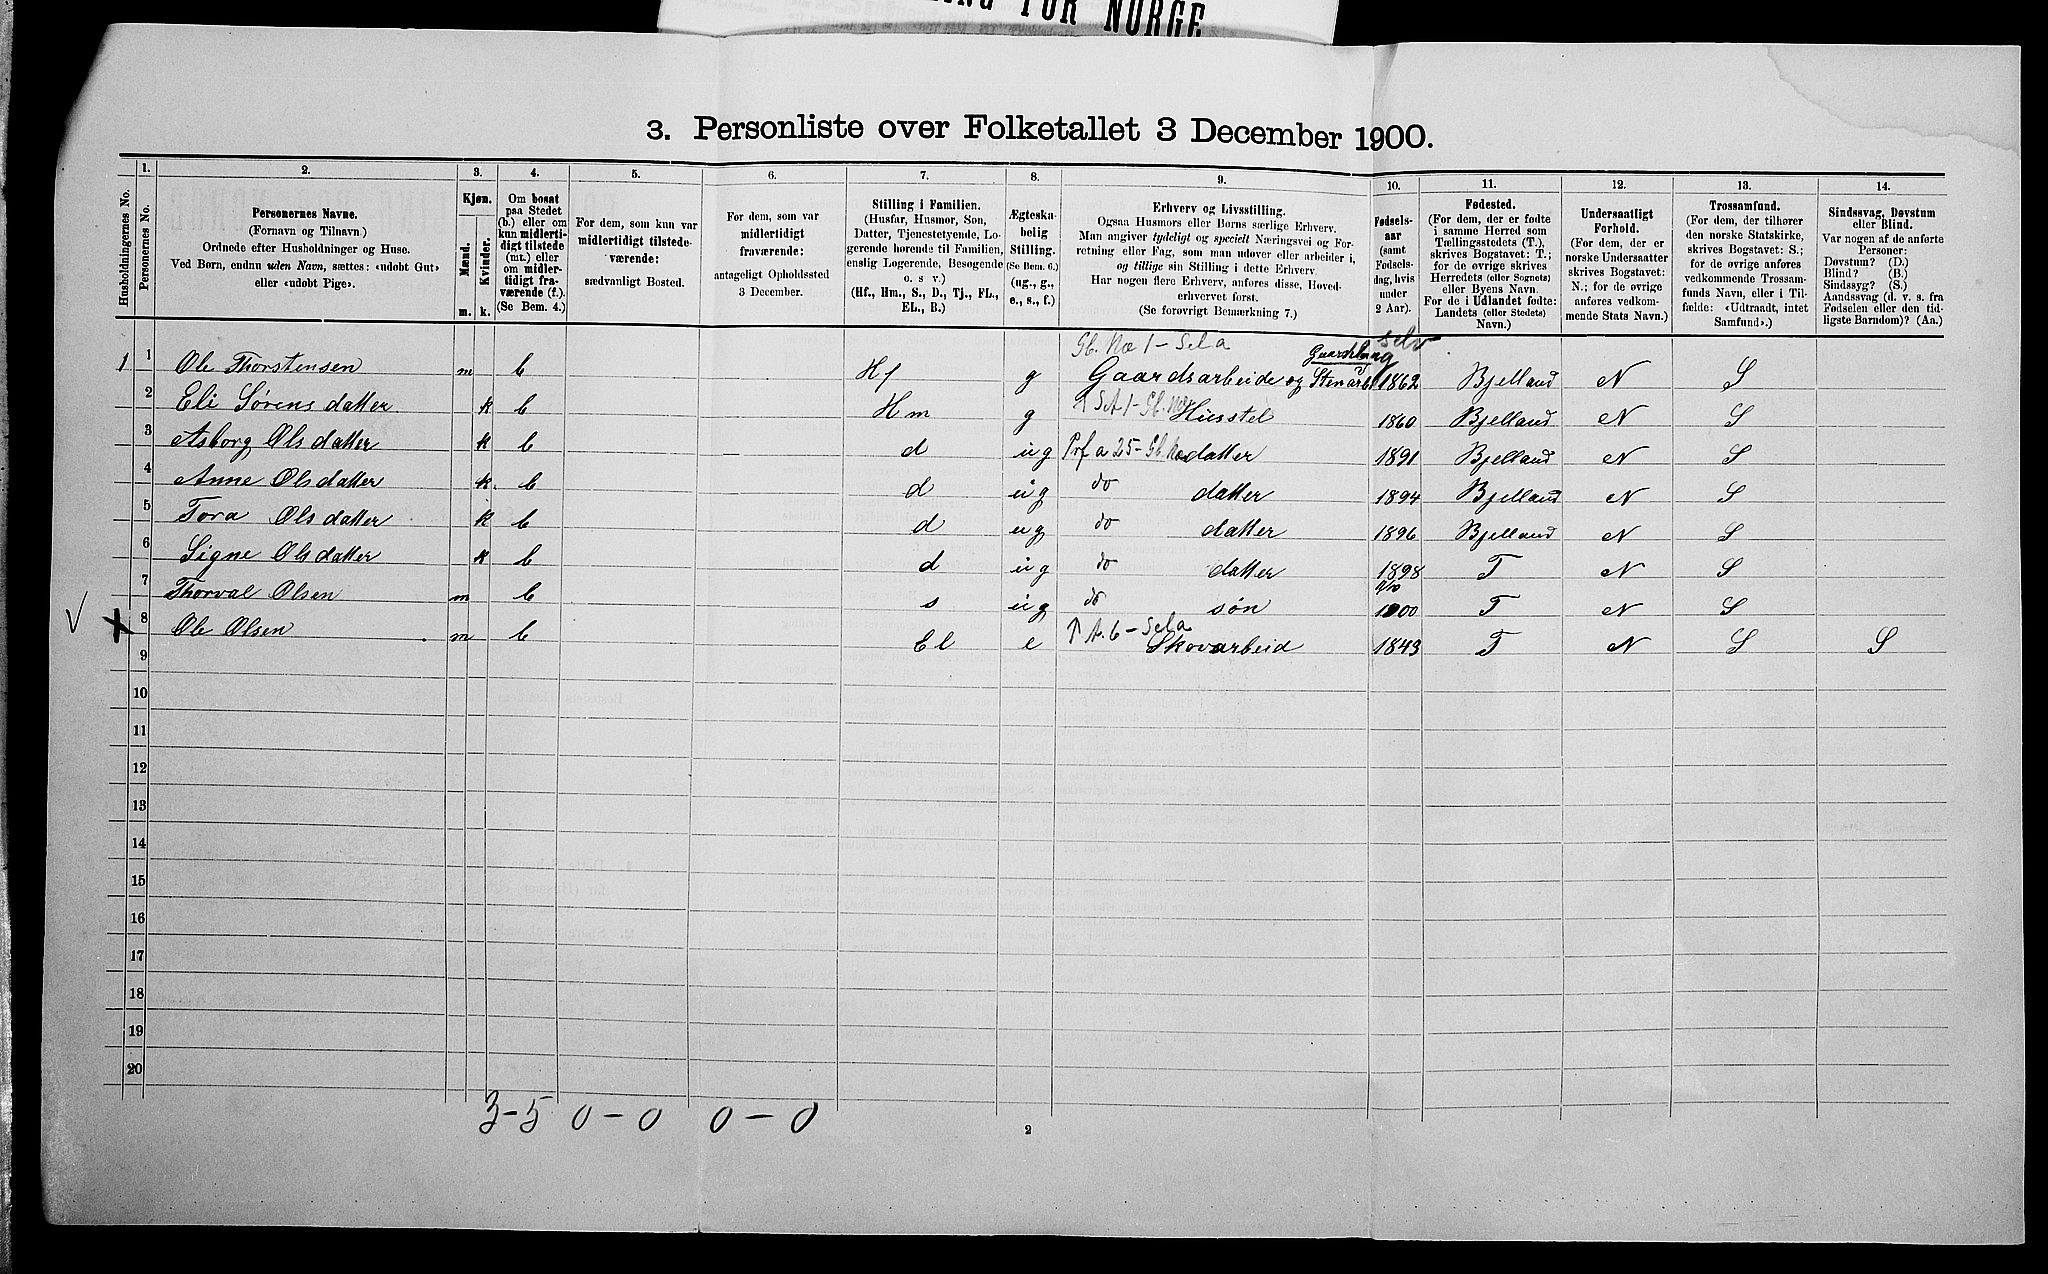 FOR NORGE
3. Personliste over Folketallet 3 December 1900.
Husholdningernes No.
1.
Personernes No.
2.
Personernes Navne.
(Fornavn og Tilnavn.)
Ordnede efter Husholdninger og Huse.
Ved Børn, endnu uden Navn, sættes: «udøbt Gut»
eller «udøbt Pige».
3.
Kjøn.
Mænd.
Kvinder.
m.
k.
4.
Om bosat
paa Stedet
(b.) eller om
kun midlerti-
digt tilstede
(mt.) eller
om midler-
tidigt fra-
værende (f.).
(Se Bem. 4.)
5.
For dem, som kun var
midlertidigt tilstede-
værende:
sædvanligt Bosted.
6.
For dem, som var
midlertidigt
fraværende:
antageligt Opholdssted
3 December.
7.
Stilling i Familien.
(Husfar, Husmor, Søn,
Datter, Tjenestetyende, Lo-
gerende hørende til Familien,
enslig Logerende, Besøgende
o. s v.)
(Hf., Hm., S., D., Tj., FL.,
EL., B.)
8.
Ægteska-
belig
Stilling.
(Se Bem. 6.)
(ug., g.,
e., s., f.)
9.
Erhverv og Livsstilling.
Ogsaa Husmors eller Børns særlige Erhverv.
Man angiver tydeligt og specielt Næringsvei og For-
retning eller Fag, som man udøver eller arbeider i,
og tillige sin Stilling i dette Erhverv.
Har nogen flere Erhverv, anføres disse, Hoved-
erhvervet først.
(Se forøvrigt Bemærkning 7.)
10.
Fødsels-
aar
(samt
Fødsels-
dag, hvis
under
2 Aar).
11.
Fødested.
(For dem, der er fødte
i samme Herred som
Tællingsstedets (T.),
skrives Bogstavet: T.;
for de øvrige skrives
Herredets (eller Sognets)
eller Byens Navn.
For de i Udlandet fødte:
Landets (eller Stedets)
Navn.)
12.
Undersaatligt
Forhold.
(For dem, der er
norske Undersaatter
skrives Bogstavet:
N.; for de øvrige
anføres vedkom-
mende Stats Navn.)
13.
Trossamfund.
(For dem, der tilhører
den norske Statskirke,
skrives Bogstavet: S.;
for de øvrige anføres
vedkommende Trossam-
funds Navn, eller i Til-
fælde: «Udtraadt, intet
Samfund».)
14.
Sindssvag, Døvstum
eller Blind.
Var nogen af de anførte
Personer:
Døvstum? (D.)
Blind? (B.)
Sindssyg? (S.)
Aandssvag (d. v. s. fra
Fødselen eller den tid-
ligste Barndom)? (Aa.)
1 1 Ole Thorstensen m b Hf g Gaardsarbeide og Stenarb 1862 Bjelland N S
2 Eli Sørensdatter k b Hm g Husstel 1860 Bjelland N S
3 Asborg Olsdatter k b d ug datter 1891 Bjelland N S
4 Anne Olsdatter k. b d ug do datter 1894 Bjelland N S
5 Tora Olsdatter k b d ug do datter 1896 Bjelland N S
6 Signe Olsdatter k b d ug do datter 1898 T N S
7 Thorval Olsen m b s ug do søn 1900 T N S
V X 8 Ole Olsen m b El e Skovarbeid 1843 T N S S
9
10
11
12
13
14
15
16
17
18
19
20
3-5 0-0 0-0
2